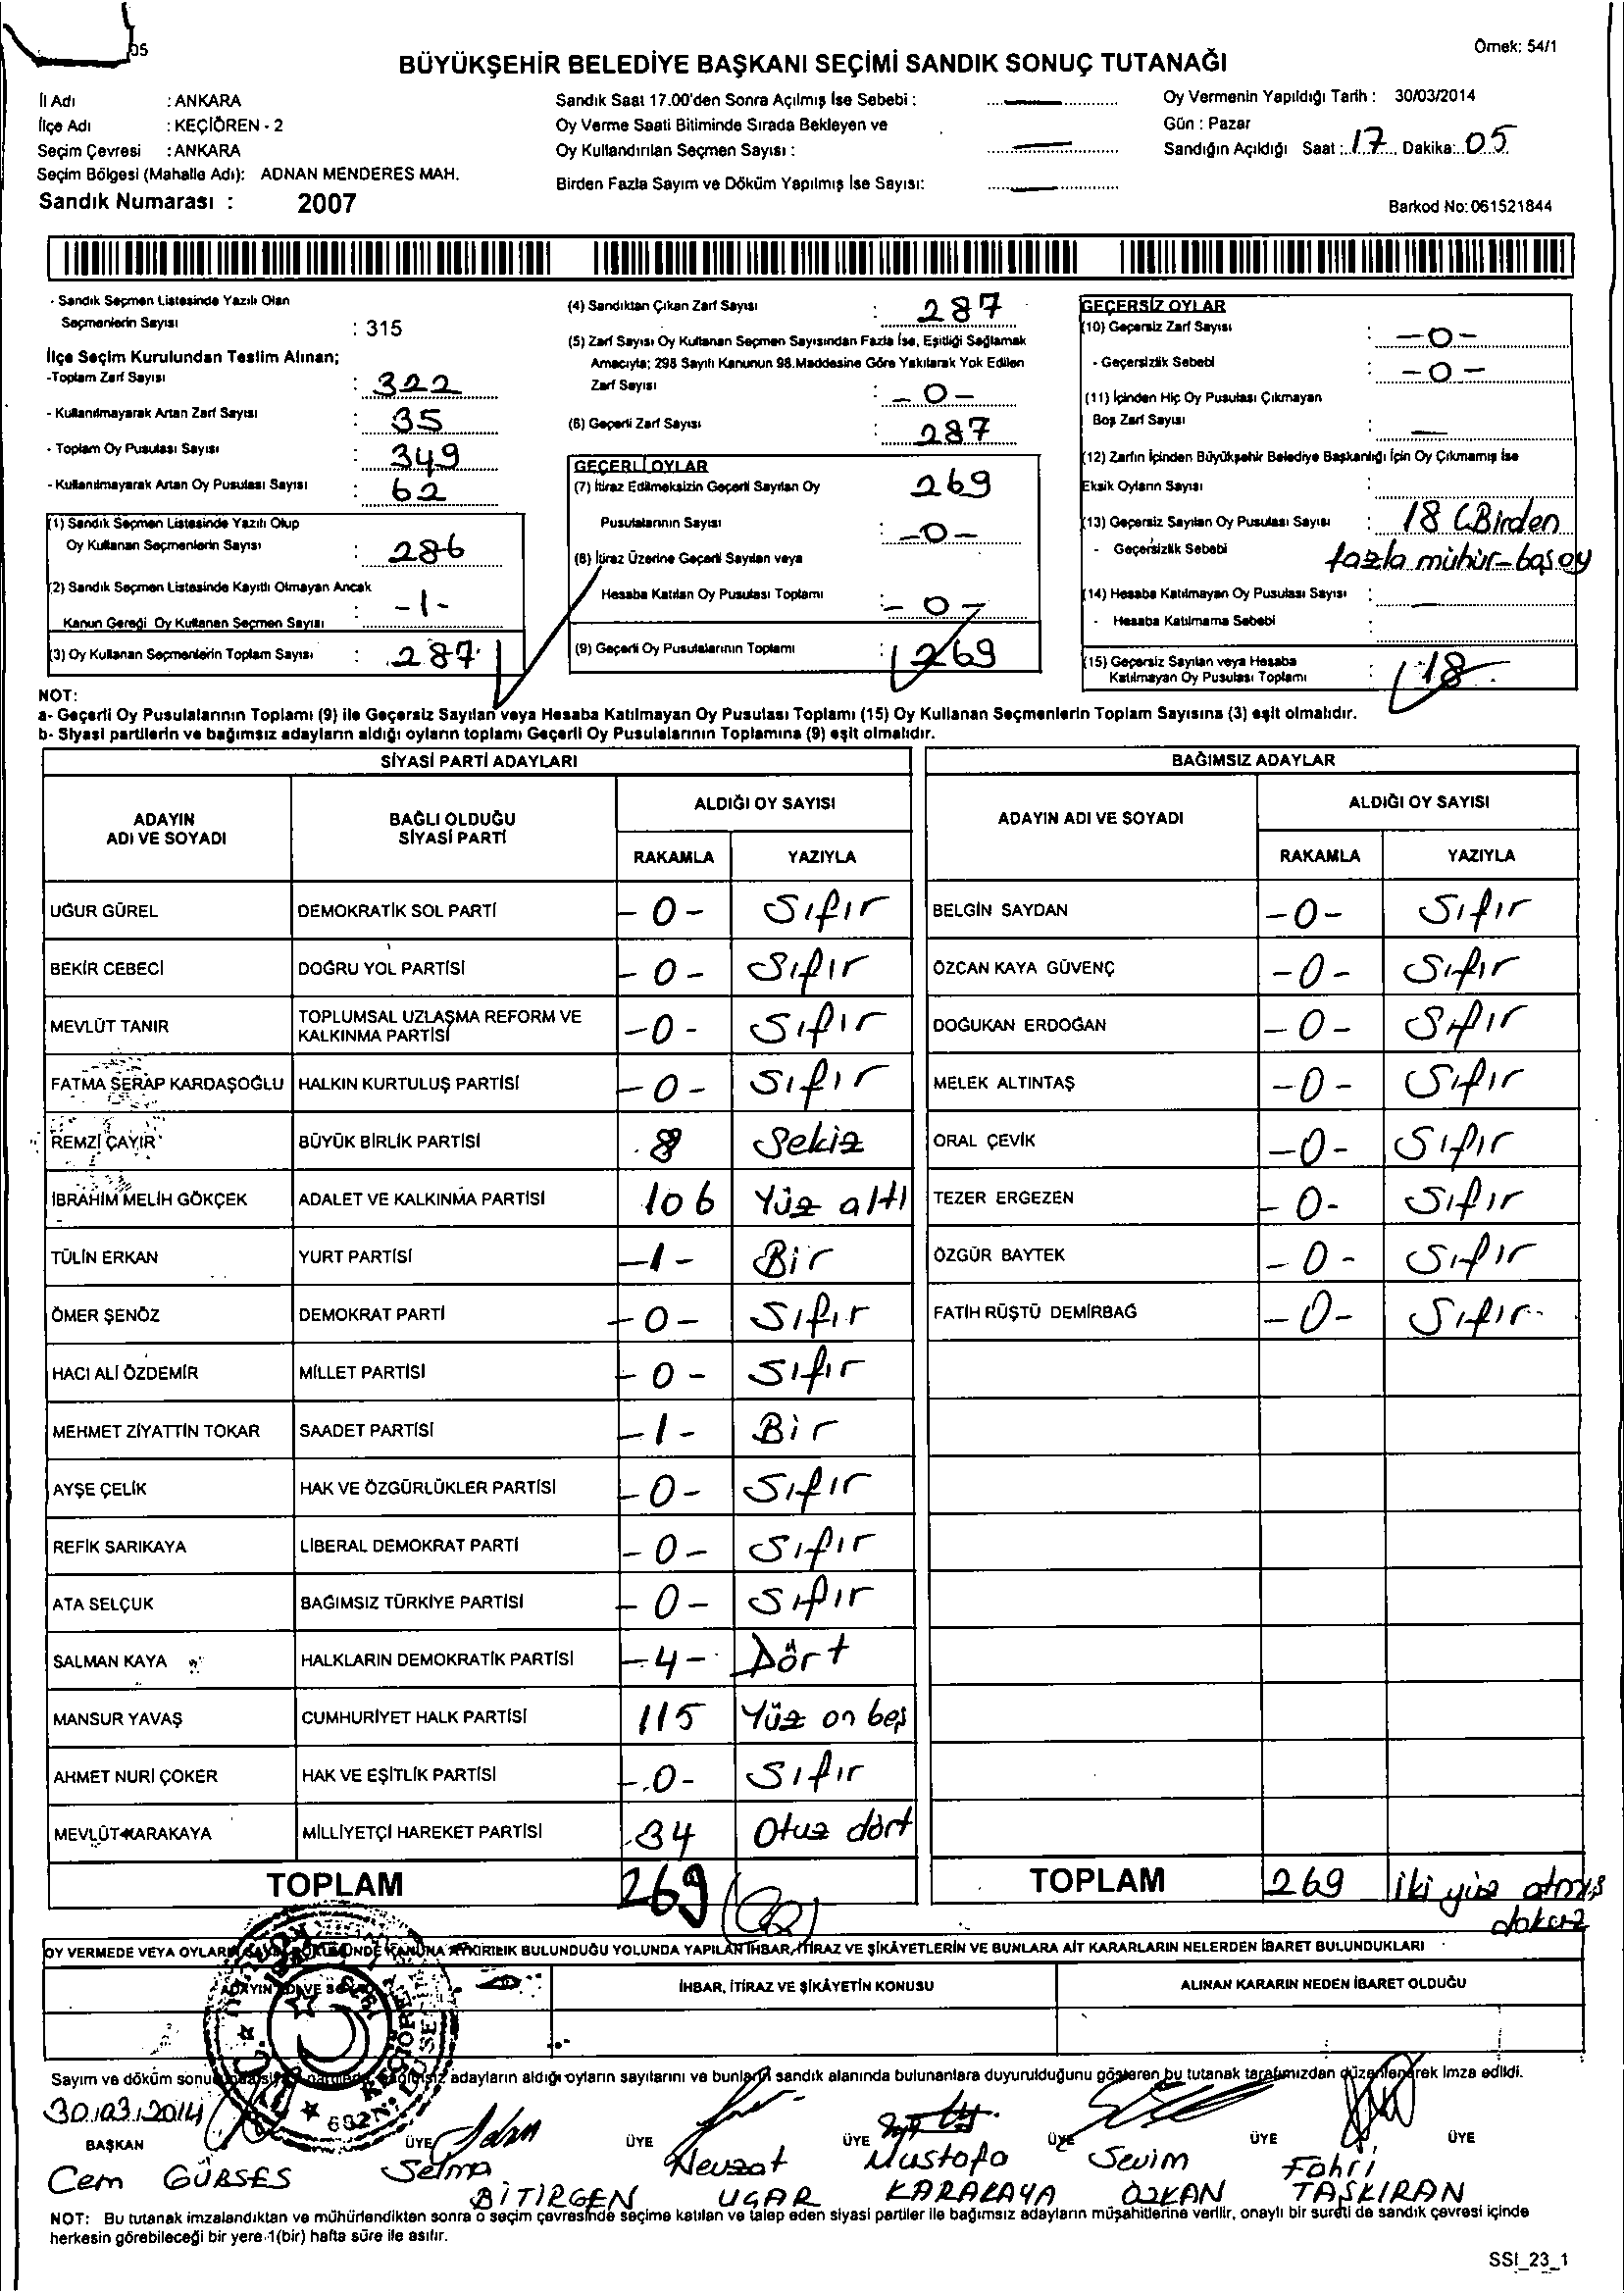 05
Örnek: 54/1
BÜYÜKŞEHİR BELEDİYE BAŞKANI SEÇİMİ SANDIK SONUÇ TUTANAĞI
İl Adı : ANKARA
İlçe Adı : KEÇİÖREN - 2
Seçim Çevresi : ANKARA
Seçim Bölgesi (Mahalle Adı): ADNAN MENDERES MAH.
Sandık Numarası : 2007
Sandık Saat 17.00'den Sonra Açılmış İse Sebebi :
Oy Verme Saati Bitiminde Sırada Bekleyen ve
Oy Kullandırılan Seçmen Sayısı :
Birden Fazla Sayım ve Döküm Yapılmış İse Sayısı:
Oy Vermenin Yapıldığı Tarih : 30/03/2014
Gün : Pazar
Sandığın Açıldığı Saat : 17 Dakika: 05
Barkod No: 061521844
- Sandık Seçmen Listesinde Yazılı Olan
Seçmenlerin Sayısı : 315
İlçe Seçim Kurulundan Teslim Alınan;
-Toplam Zarf Sayısı : 322
- Kullanılmayarak Artan Zarf Sayısı : 35
- Toplam Oy Pusulası Sayısı : 349
- Kullanılmayarak Artan Oy Pusulası Sayısı : 62
(1) Sandık Seçmen Listesinde Yazılı Olup
Oy Kullanan Seçmenlerin Sayısı : 286
(2) Sandık Seçmen Listesinde Kayıtlı Olmayan Ancak
Kanun Gereği Oy Kullanan Seçmen Sayısı : -1-
(3) Oy Kullanan Seçmenlerin Toplam Sayısı : 287
(4) Sandıktan Çıkan Zarf Sayısı : 287
(5) Zarf Sayısı Oy Kullanan Seçmen Sayısından Fazla İse, Eşitliği Sağlamak
Amacıyla; 298 Sayılı Kanunun 98.Maddesine Göre Yakılarak Yok Edilen
Zarf Sayısı : -0-
(6) Geçerli Zarf Sayısı : 287
GEÇERLİ OYLAR
(7) İtiraz Edilmeksizin Geçerli Sayılan Oy 269
Pusulalarının Sayısı : -0-
(8) İtiraz Üzerine Geçerli Sayılan veya
Hesaba Katılan Oy Pusulası Toplamı : -0-
(9) Geçerli Oy Pusulalarının Toplamı : 269
GEÇERSİZ OYLAR
(10) Geçersiz Zarf Sayısı : -0-
- Geçersizlik Sebebi : -0-
(11) İçinden Hiç Oy Pusulası Çıkmayan
Boş Zarf Sayısı : —
(12) Zarfın İçinden Büyükşehir Belediye Başkanlığı İçin Oy Çıkmamış İse
Eksik Oyların Sayısı :
(13) Geçersiz Sayılan Oy Pusulası Sayısı : 18 (Birden
- Geçersizlik Sebebi fazla mühür-boş oy
(14) Hesaba Katılmayan Oy Pusulası Sayısı : —
- Hesaba Katılmama Sebebi :
(15) Geçersiz Sayılan veya Hesaba
Katılmayan Oy Pusulası Toplamı : 18
NOT:
a- Geçerli Oy Pusulalarının Toplamı (9) ile Geçersiz Sayılan veya Hesaba Katılmayan Oy Pusulası Toplamı (15) Oy Kullanan Seçmenlerin Toplam Sayısına (3) eşit olmalıdır.
b- Siyasi partilerin ve bağımsız adayların aldığı oyların toplamı Geçerli Oy Pusulalarının Toplamına (9) eşit olmalıdır.
SİYASİ PARTİ ADAYLARI
ADAYIN ADI VE SOYADI BAĞLI OLDUĞU SİYASİ PARTİ ALDIĞI OY SAYISI
RAKAMLA YAZIYLA
UĞUR GÜREL DEMOKRATİK SOL PARTİ -0- Sıfır
BEKİR CEBECİ DOĞRU YOL PARTİSİ -0- Sıfır
MEVLÜT TANIR TOPLUMSAL UZLAŞMA REFORM VE KALKINMA PARTİSİ -0- Sıfır
FATMA SERAP KARDAŞOĞLU HALKIN KURTULUŞ PARTİSİ -0- Sıfır
REMZİ ÇAYIR BÜYÜK BİRLİK PARTİSİ 8 Sekiz
İBRAHİM MELİH GÖKÇEK ADALET VE KALKINMA PARTİSİ 106 Yüz altı
TÜLİN ERKAN YURT PARTİSİ -1- Bir
ÖMER ŞENÖZ DEMOKRAT PARTİ -0- Sıfır
HACI ALİ ÖZDEMİR MİLLET PARTİSİ -0- Sıfır
MEHMET ZİYATTİN TOKAR SAADET PARTİSİ -1- Bir
AYŞE ÇELİK HAK VE ÖZGÜRLÜKLER PARTİSİ -0- Sıfır
REFİK SARIKAYA LİBERAL DEMOKRAT PARTİ -0- Sıfır
ATA SELÇUK BAĞIMSIZ TÜRKİYE PARTİSİ -0- Sıfır
SALMAN KAYA HALKLARIN DEMOKRATİK PARTİSİ -4- Dört
MANSUR YAVAŞ CUMHURİYET HALK PARTİSİ 115 Yüz on beş
AHMET NURİ ÇOKER HAK VE EŞİTLİK PARTİSİ -0- Sıfır
MEVLÜT KARAKAYA MİLLİYETÇİ HAREKET PARTİSİ 34 Otuz dört
TOPLAM 269
BAĞIMSIZ ADAYLAR
ADAYIN ADI VE SOYADI ALDIĞI OY SAYISI
RAKAMLA YAZIYLA
BELGİN SAYDAN -0- Sıfır
ÖZCAN KAYA GÜVENÇ -0- Sıfır
DOĞUKAN ERDOĞAN -0- Sıfır
MELEK ALTINTAŞ -0- Sıfır
ORAL ÇEVİK -0- Sıfır
TEZER ERGEZEN -0- Sıfır
ÖZGÜR BAYTEK -0- Sıfır
FATİH RÜŞTÜ DEMİRBAĞ -0- Sıfır
TOPLAM 269 iki yüz atmış
dokuz
OY VERMEDE VEYA OYLARIN DÖKÜMÜNDE KANUNA AYKIRILIK BULUNDUĞU YOLUNDA YAPILAN İHBAR, İTİRAZ VE ŞİKÂYETLERİN VE BUNLARA AİT KARARLARIN NELERDEN İBARET BULUNDUKLARI
ADAYIN ADI VE SOYADI İHBAR, İTİRAZ VE ŞİKÂYETİN KONUSU ALINAN KARARIN NEDEN İBARET OLDUĞU
Sayım ve döküm adayların aldığı oyların sayılarını ve bunların sandık alanında bulunanlara duyurulduğunu gösteren bu tutanak tarafımızdan düzenlenerek imza edildi.
30.03.2014
BAŞKAN ÜYE ÜYE ÜYE ÜYE ÜYE ÜYE
Cem GÜRSES Selma BİTİRGEN Nevzat UÇAR Mustafa KARAKAYA Sevim ÖZKAN Fahri TAŞKIRAN
NOT: Bu tutanak imzalandıktan ve mühürlendikten sonra o seçim çevresinde seçime katılan ve talep eden siyasi partiler ile bağımsız adayların müşahitlerine verilir, onaylı bir sureti de sandık çevresi içinde
herkesin görebileceği bir yere 1(bir) hafta süre ile asılır.
SSİ_23_1